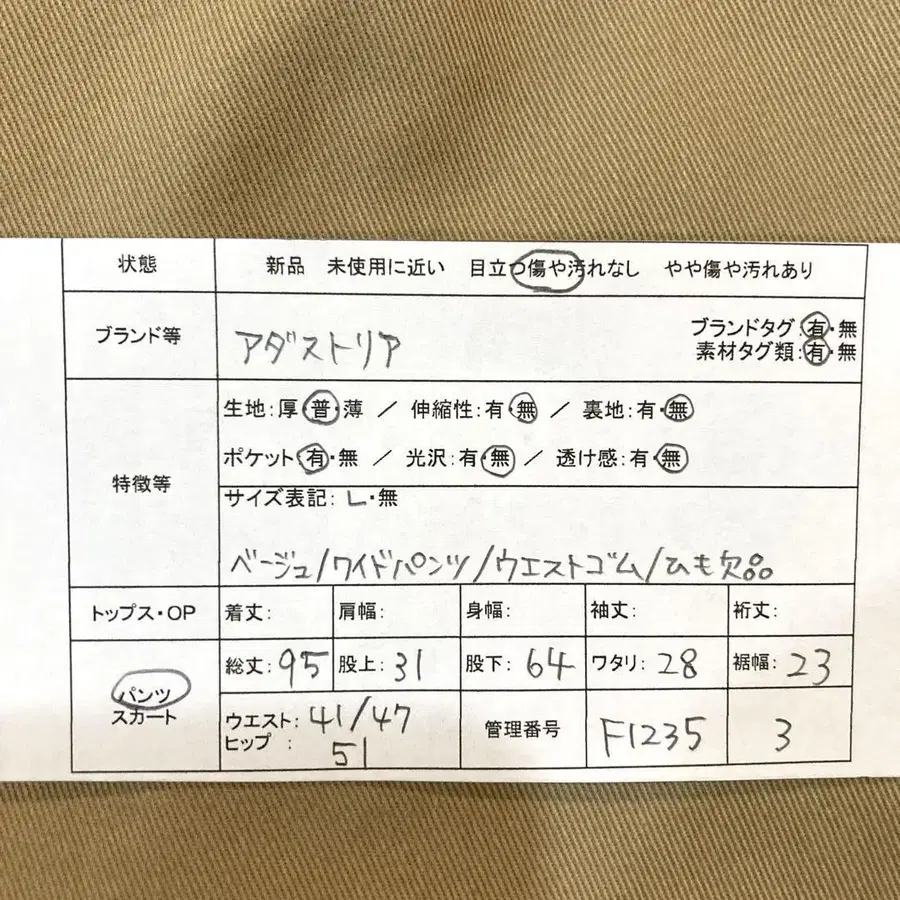 状態 新品 未使用に近い 目立つ傷や汚れなし やや傷や汚れあり
ブランド等 アダストリア ブランドタグ:有・無
素材タグ類:有・無
特徴等 生地:厚・普・薄 / 伸縮性:有・無 / 裏地:有・無
ポケット有・無 / 光沢:有・無 / 透け感:有・無
サイズ表記: L・無
ベージュ/ワイドパンツ/ウエストゴム/ひも欠品
トップス・OP 着丈: 肩幅: 身幅: 袖丈: 裄丈:
パンツ スカート 総丈:95 股上:31 股下:64 ワタリ:28 裾幅:23
ウエスト:41/47 管理番号 F1235 3
ヒップ : 51